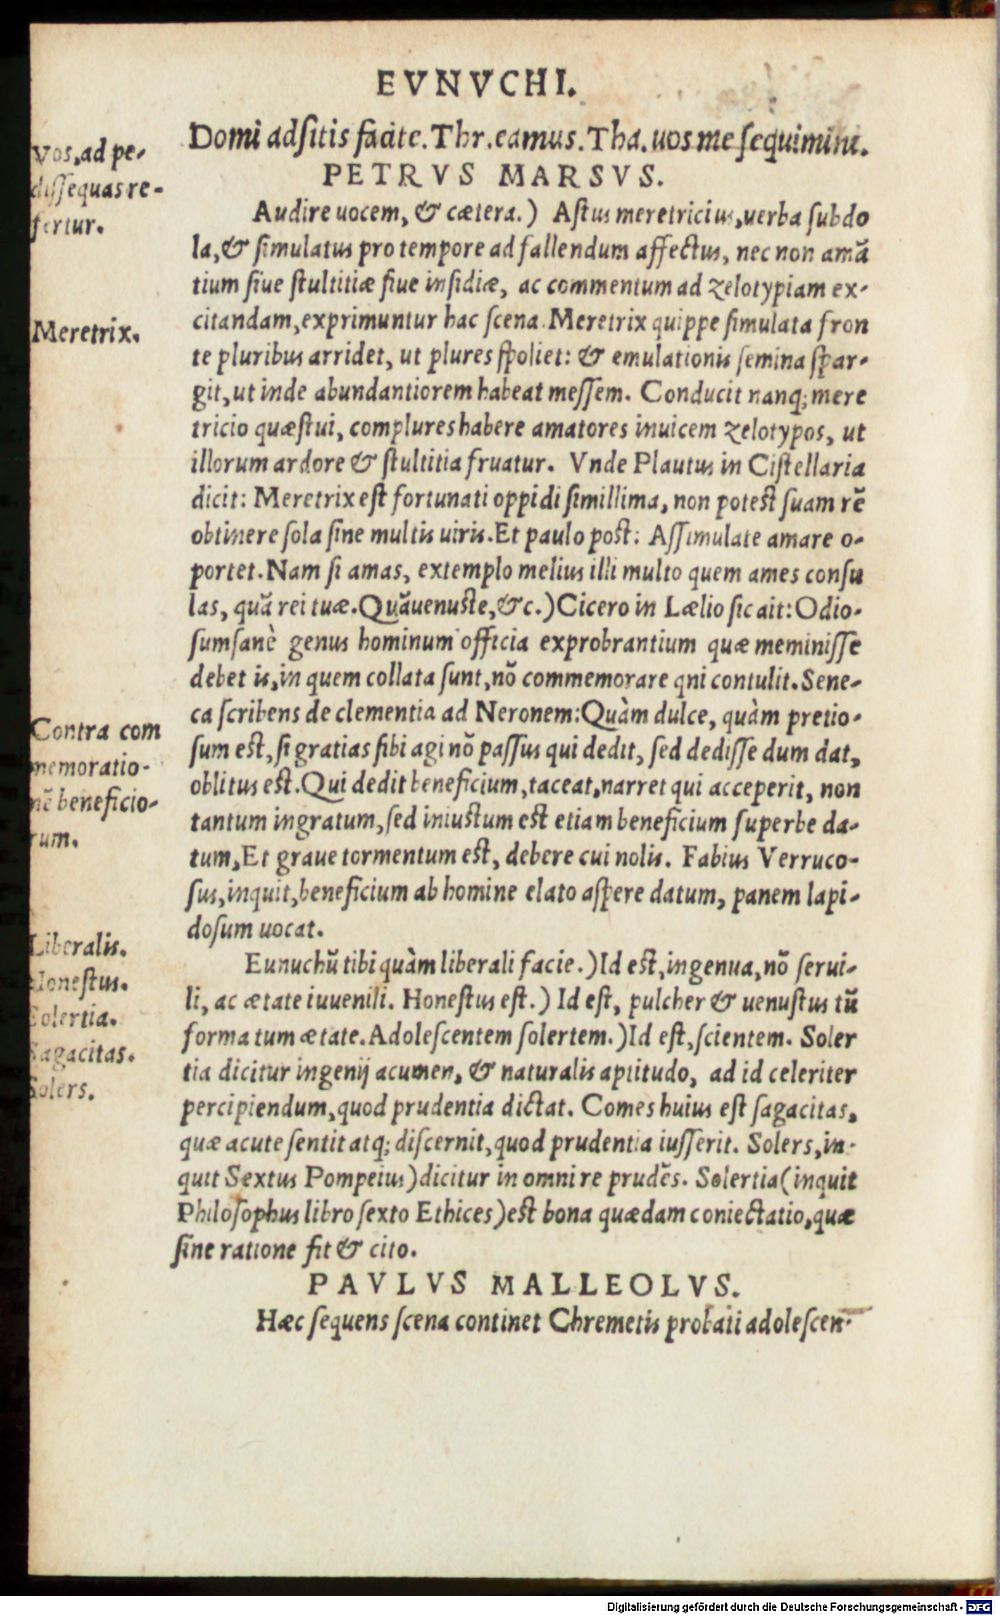 EVNVCHI.
Domi adſitis facite. Thr. eamus. Tha. uos me ſequimini.
Vos, ad pe-
diſſequas re-
fertur.
PETRVS MARSVS.
Audire uocem, & cætera.) Aſtus meretricius, uerba ſubdo
la, & ſimulatus pro tempore ad fallendum affectus, nec non amā
tium ſiue ſtultitiæ ſiue inſidiæ, ac commentum ad zelotypiam ex-
citandam, exprimuntur hac ſcena. Meretrix quippe ſimulata fron
Meretrix.
te pluribus arridet, ut plures ſpoliet: & emulationis ſemina ſpar-
git, ut inde abundantiorem habeat meſſem. Conducit nanq; mere
tricio quæſtui, complures habere amatores inuicem zelotypos, ut
illorum ardore & ſtultitia fruatur. Vnde Plautus in Ciſtellaria
dicit: Meretrix eſt fortunati oppidi ſimillima, non poteſt ſuam rē
obtinere ſola ſine multis uiris. Et paulo poſt: Aſſimulate amare o-
portet. Nam ſi amas, extemplo melius illi multo quem ames conſu
las, quā rei tuæ. Quāuenuſte, &c.) Cicero in Lælio ſic ait: Odio-
ſum ſanè genus hominum officia exprobrantium quæ meminiſſe
debet is, in quem collata ſunt, nō commemorare qni contulit. Sene-
ca ſcribens de clementia ad Neronem: Quàm dulce, quàm pretio-
Contra com
memoratio-
nē beneficio-
rum.
ſum eſt, ſi gratias ſibi agi nō paſſus qui dedit, ſed dediſſe dum dat,
oblitus eſt. Qui dedit beneficium, taceat, narret qui acceperit, non
tantum ingratum, ſed iniuſtum eſt etiam beneficium ſuperbe da-
tum, Et graue tormentum eſt, debere cui nolis. Fabius Verruco-
ſus, inquit, beneficium ab homine elato aſpere datum, panem lapi-
doſum uocat.
Liberalis.
Honeſtus.
Solertia.
Sagacitas.
Solers.
Eunuchū tibi quàm liberali facie.) Id eſt, ingenua, nō ſerui-
li, ac ætate iuuenili. Honeſtus eſt.) Id eſt, pulcher & uenuſtus tū
forma tum ætate. Adoleſcentem ſolertem.) Id eſt, ſcientem. Soler
tia dicitur ingenij acumen, & naturalis aptitudo, ad id celeriter
percipiendum, quod prudentia dictat. Comes huius eſt ſagacitas,
quæ acute ſentit atq; diſcernit, quod prudentia iuſſerit. Solers, in-
quit Sextus Pompeius) dicitur in omni re prudēs. Solertia (inquit
Philoſophus libro ſexto Ethices) eſt bona quædam coniectatio, quæ
ſine ratione fit & cito.
PAVLVS MALLEOLVS.
Hæc ſequens ſcena continet Chremetis probati adoleſcen-
Digitalisierung gefördert durch die Deutsche Forschungsgemeinschaft - DFG